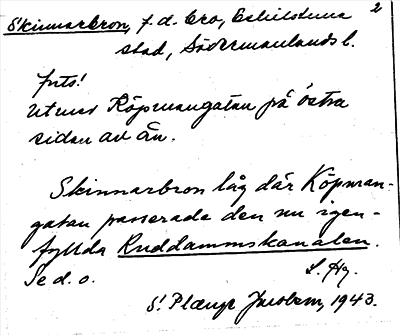 Skinnarbron, f.d. bro, Eskilstuna 2
stad, Södermanlands l.
forts!
utmed Köpmangatan på östra
sidan av ån.
Skinnarbron låg där Köpman-
gatan passerade den nu igen-
fyllda Ruddammskanalen.
Se d. o.
S! Plænge Jacobsen, 1943.